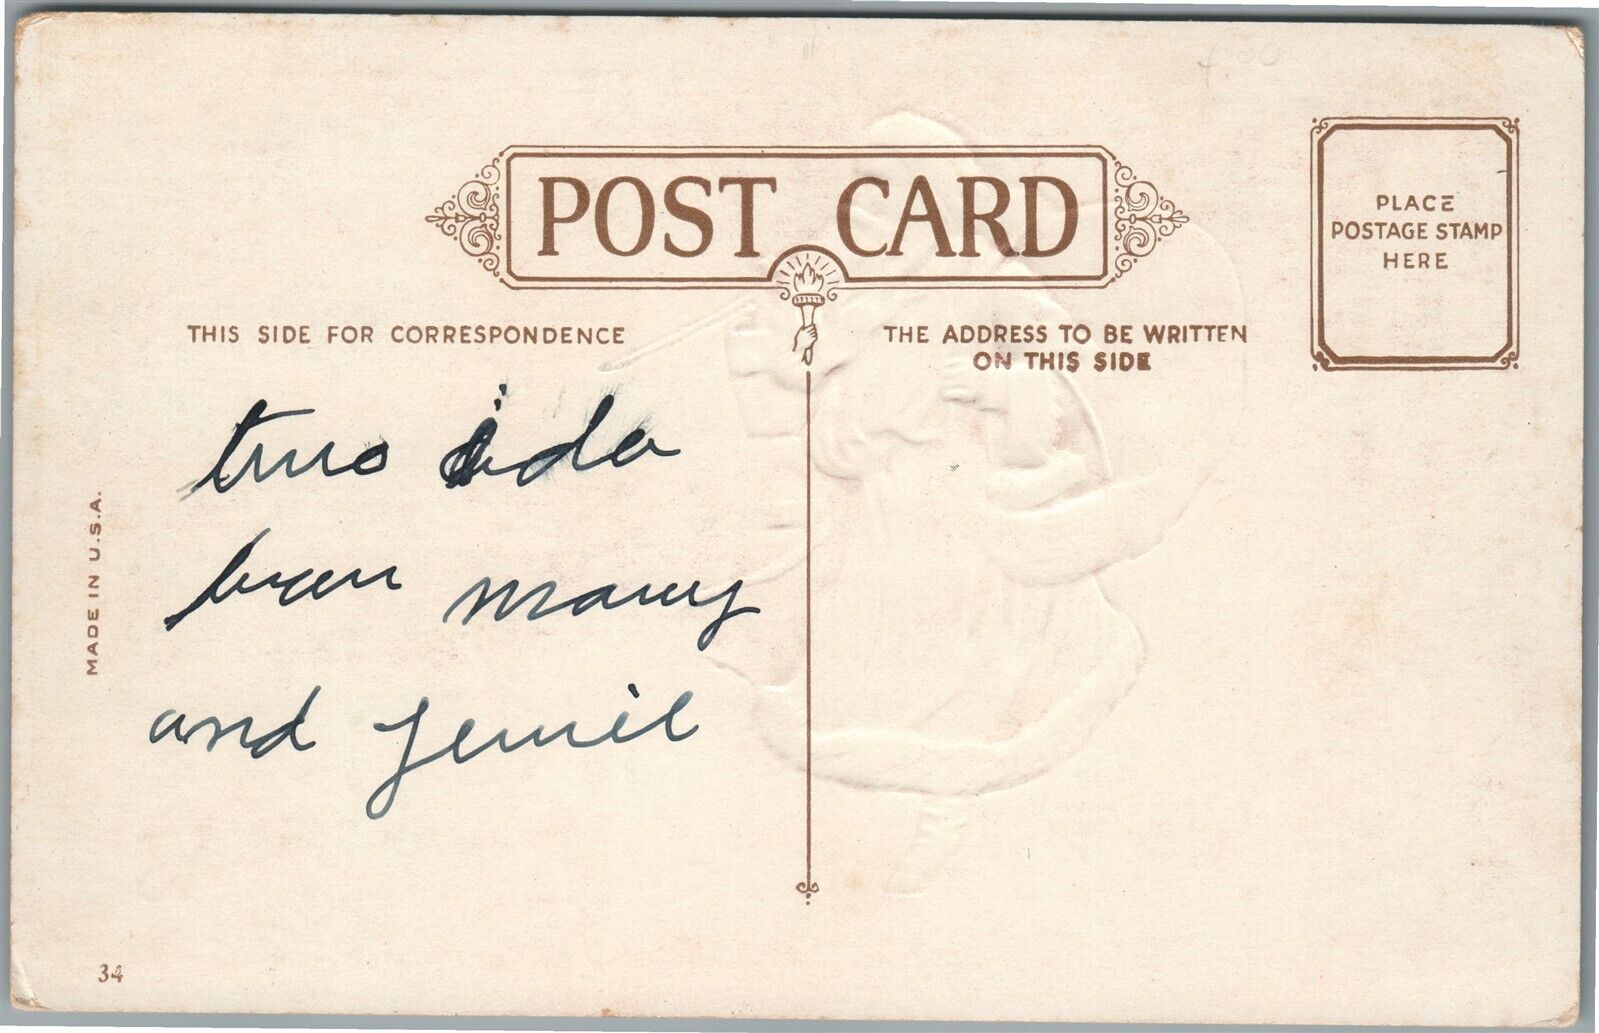 4.00
POST CARD
PLACE
POSTAGE STAMP
HERE
THIS SIDE FOR CORRESPONDENCE
THE ADDRESS TO BE WRITTEN
ON THIS SIDE
MADE IN U.S.A.
ida
and
34